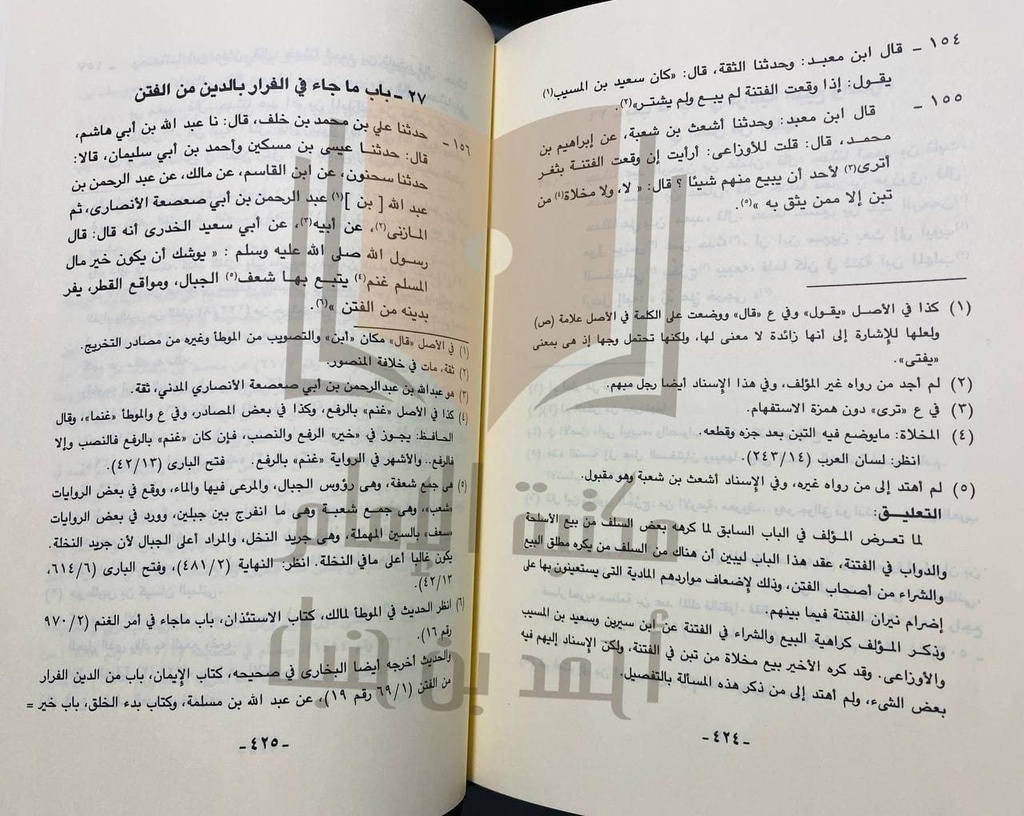 ١٥٤ - قال ابن معبد: وحدثنا الثقة، قال: «كان سعيد بن المسيب(١)
يقول: إذا وقعت الفتنة لم يبع ولم يشتر»(٢).
١٥٥ - قال ابن معبد: وحدثنا أشعث بن شعبة، عن إبراهيم بن
محمد، قال: قلت للأوزاعى: أرأيت إن وقعت الفتنة بثغر
أترى(٣) لأحد أن يبيع منهم شيئا؟ قال: «لا، ولا مخلاة(٤) من
تبن إلا ممن يثق به»(٥).
(١) كذا في الأصل «يقول» وفي ع «قال» ووضعت على الكلمة في الأصل علامة (ص)
ولعلها للإشارة إلى أنها زائدة لا معنى لها، ولكنها تحتمل وجها إذ هى بمعنى
«يفتى».
(٢) لم أجد من رواه غير المؤلف، وفي هذا الإسناد أيضا رجل مبهم.
(٣) في ع «ترى» دون همزة الاستفهام.
(٤) المخلاة: مايوضع فيه التبن بعد جزه وقطعه.
انظر: لسان العرب (٢٤٣/١٤).
(٥) لم أهتد إلى من رواه غيره، وفي الإسناد أشعث بن شعبة وهو مقبول.
التعليق:
لما تعرض المؤلف في الباب السابق لما كرهه بعض السلف من بيع الأسلحة
والدواب في الفتنة، عقد هذا الباب ليبين أن هناك من السلف من يكره مطلق البيع
والشراء من أصحاب الفتن، وذلك لإضعاف مواردهم المادية التى يستعينون بها على
إضرام نيران الفتنة فيما بينهم.
وذكر المؤلف كراهية البيع والشراء في الفتنة عن ابن سيرين وسعيد بن المسيب
والأوزاعى. وقد كره الأخير بيع مخلاة من تبن في الفتنة، ولكن الإسناد إليهم فيه
بعض الشىء، ولم أهتد إلى من ذكر هذه المسالة بالتفصيل.
- ٤٢٤ -
٢٧ - باب ما جاء في الفرار بالدين من الفتن
١٥٦ - حدثنا علي بن محمد بن خلف، قال: نا عبد الله بن أبي هاشم،
قال: حدثنا عيسى بن مسكين وأحمد بن أبي سليمان، قالا:
حدثنا سحنون، عن ابن القاسم، عن مالك، عن عبد الرحمن بن
عبد الله [بن](١) عبد الرحمن بن أبي صعصعة الأنصارى، ثم
المازنى(٢)، عن أبيه(٣)، عن أبي سعيد الخدرى أنه قال: قال
رسول الله صلى الله عليه وسلم: «يوشك أن يكون خير مال
المسلم غنم(٤) يتبع بها شعف(٥) الجبال، ومواقع القطر، يفر
بدينه من الفتن»(٦).
(١) في الأصل «قال» مكان «ابن» والتصويب من الموطأ وغيره من مصادر التخريج.
(٢) ثقة، مات في خلافة المنصور.
(٣) هو عبدالله بن عبدالرحمن بن أبي صعصعة الأنصاري المدني، ثقة.
(٤) كذا في الأصل «غنم» بالرفع، وكذا في بعض المصادر، وفي ع والموطأ «غنما»، وقال
الحافظ: يجوز في «خير» الرفع والنصب، فإن كان «غنم» بالرفع فالنصب وإلا
فالرفع.. والأشهر في الرواية «غنم» بالرفع. فتح البارى (٤٢/١٣).
(٥) هى جمع شعفة، وهى رؤوس الجبال، والمرعى فيها والماء، ووقع في بعض الروايات
«شعب»، وهى جمع شعبة وهى ما انفرج بين جبلين، وورد في بعض الروايات
«سعف» بالسين المهملة، وهى جريد النخل، والمراد أعلى الجبال لأن جريد النخلة.
يكون غالبا أعلى مافي النخلة. انظر: النهاية (٤٨١/٢)، وفتح البارى (٦١٤/٦،
٤٢/١٣).
(٦) انظر الحديث في الموطأ لمالك، كتاب الاستئذان، باب ماجاء في أمر الغنم (٩٧٠/٢
رقم ١٦).
والحديث أخرجه أيضا البخارى في صحيحه، كتاب الإيمان، باب من الدين الفرار
من الفتن (٦٩/١ رقم ١٩)، عن عبد الله بن مسلمة، وكتاب بدء الخلق، باب خير =
- ٤٢٥ -